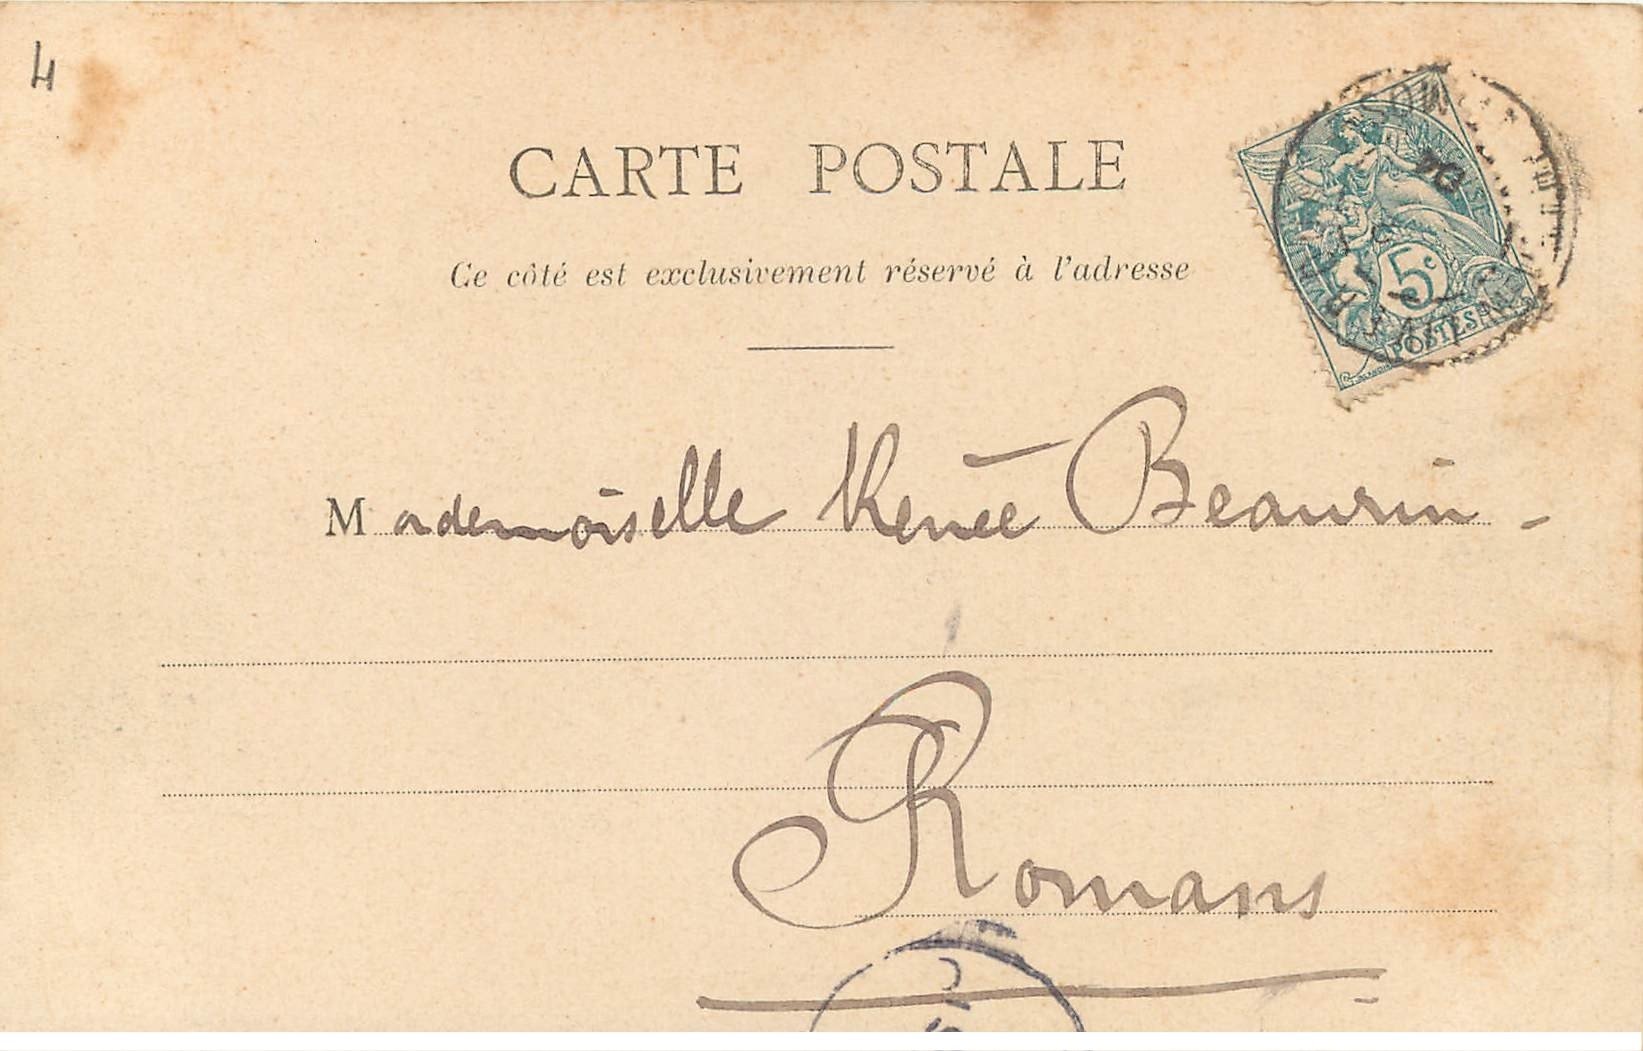 4
CARTE POSTALE
Ce côté est exclusivement réservé à l'adresse
5c
POSTES
04
Mademoiselle Renée Beaurin -
Romans